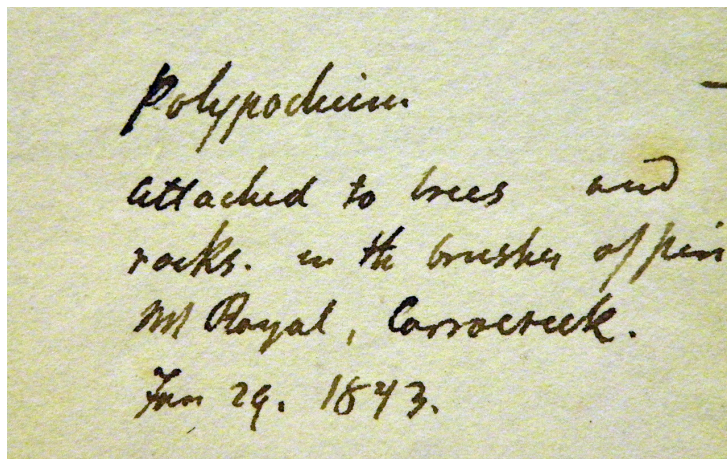 Polypodium
attached to trees and
rocks. in the brushes of
Mt Royal, Carrocreek.
Jan 29. 1843.